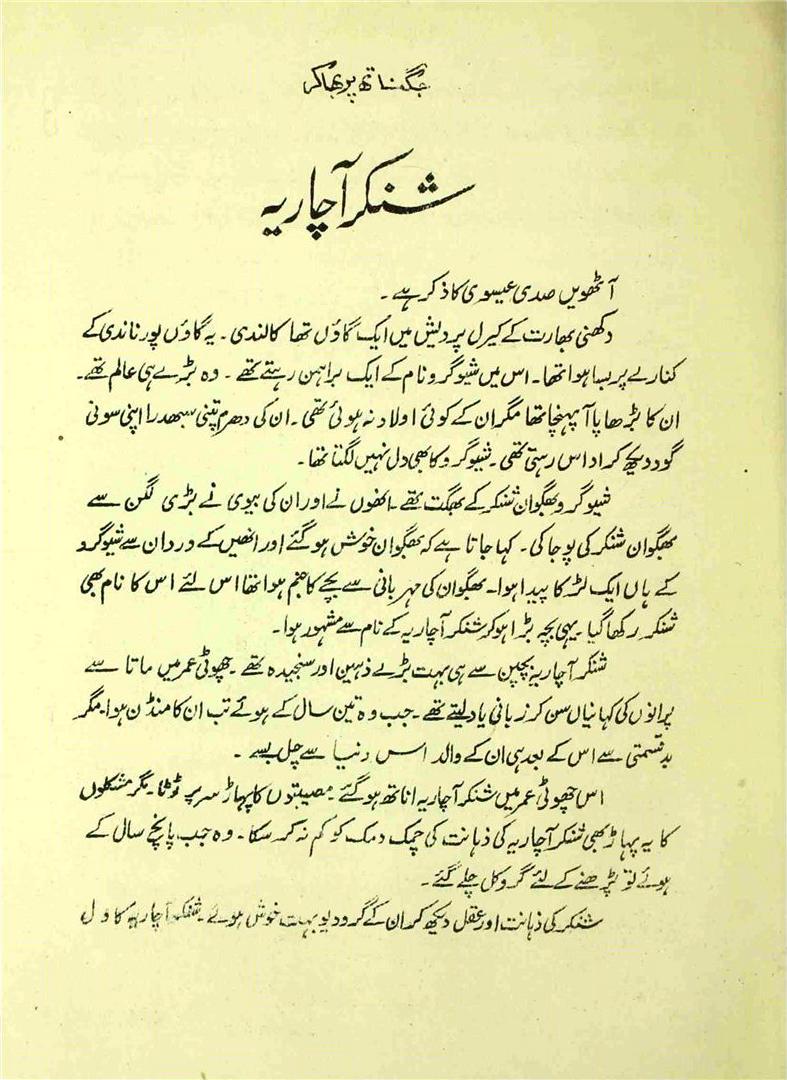 جگناتھ پربھاکر
شنکر آچاریہ
آٹھویں صدی عیسوی کا ذکر ہے۔
دکھنی بھارت کے کیرل پردیش میں ایک گاؤں تھا کالندی۔ یہ گاؤں پورناندی کے
کنارے پر بسا ہوا تھا۔ اس میں شیو گرو نام کے ایک براہمن رہتے تھے۔ وہ بڑے ہی عالم تھے۔
ان کا بڑھاپا آ پہنچا تھا مگر ان کے کوئی اولاد نہ ہوئی تھی۔ ان کی دھرم پتنی سبھدرا اپنی سونی
گود دیکھ کر اداس رہتی تھی۔ شیو گرو کا بھی دل نہیں لگتا تھا۔
شیو گرو بھگوان شنکر کے بھگت تھے۔ انھوں نے اور ان کی بیوی نے بڑی لگن سے
بھگوان شنکر کی پوجا کی۔ کہا جاتا ہے کہ بھگوان خوش ہو گئے اور انھیں کے دردان سے شیو گرو
کے ہاں ایک لڑکا پیدا ہوا۔ بھگوان کی مہربانی سے بچے کا جنم ہوا تھا اس لئے اس کا نام بھی
شنکر رکھا گیا۔ یہی بچہ بڑا ہو کر شنکر آچاریہ کے نام سے مشہور ہوا۔
شنکر آچاریہ بچپن سے ہی بہت بڑے ذہین اور سنجیدہ تھے۔ چھوٹی عمر میں ماتا سے
پرانوں کی کہانیاں سن کر زبانی یاد لیتے تھے۔ جب وہ تین سال کے ہوئے تب ان کا منڈن ہوا۔ مگر
بدقسمتی سے اس کے بعد ہی ان کے والد اس دنیا سے چل بسے۔
اس چھوٹی عمر میں شنکر آچاریہ اناتھ ہو گئے۔ مصیبتوں کا پہاڑ سر پر ٹوٹا۔ مگر مشکلوں
کا یہ پہاڑ بھی شنکر آچاریہ کی ذہانت کی چمک دمک کو کم نہ کر سکا۔ وہ جب پانچ سال کے
ہوئے تو پڑھنے کے لئے گروکل چلے گئے۔
شنکر کی ذہانت اور عقل دیکھ کر ان کے گرودیو بہت خوش ہوئے۔ شنکر آچاریہ کا دل